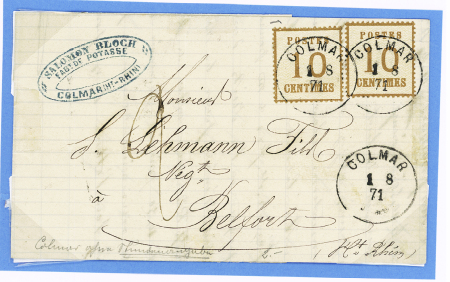 SALOMON BLOCH
POTASSE
COLMAR (Ht-RHIN)
POSTES
10
CENTIMES
POSTES
10
CENTIMES
COLMAR
1 8
71
COLMAR
1 8
71
Monsieur
S. Lehmann Fils
Negt
COLMAR
1 8
71
à
Belfort
(Ht Rhin)
Colmar ohne Stundenangabe
2.-